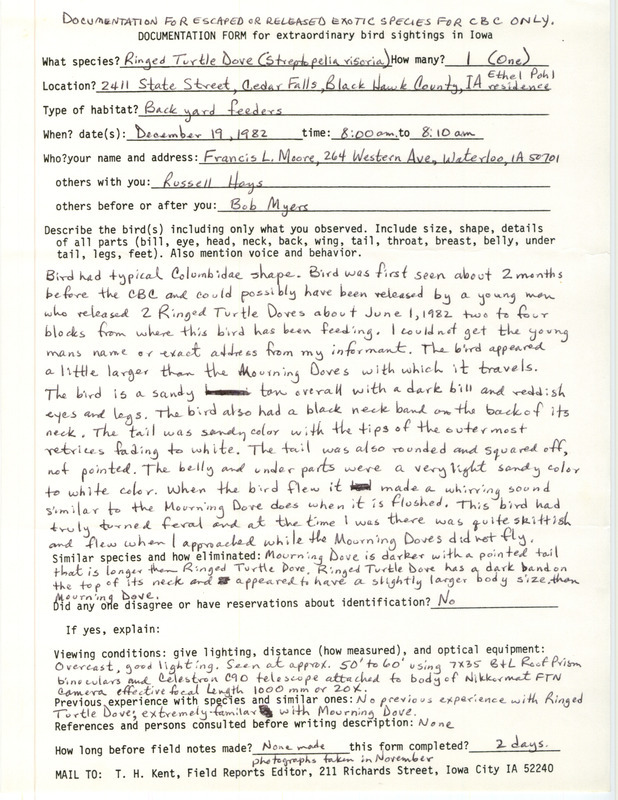 DOCUMENTATION FOR ESCAPED OR RELEASED EXOTIC SPECIES FOR CBC ONLY.
DOCUMENTATION FORM for extraordinary bird sightings in Iowa
What species? Ringed Turtle Dove (Streptopelia risoria) How many? 1 (One)
Location? 2411 State Street, Cedar Falls, Black Hawk County, IA Ethel Pohl residence
Type of habitat? Back yard feeders
When? date(s): December 19, 1982 time: 8:00am. to 8:10 am
Who? your name and address: Francis L. Moore, 264 Western Ave, Waterloo, IA 50701
others with you: Russell Hays
others before or after you: Bob Myers
Describe the bird(s) including only what you observed. Include size, shape, details
of all parts (bill, eye, head, neck, back, wing, tail, throat, breast, belly, under
tail, legs, feet). Also mention voice and behavior.
Bird had typical Columbidae shape. Bird was first seen about 2 months
before the CBC and could possibly have been released by a young man
who released 2 Ringed Turtle Doves about June 1, 1982 two to four
blocks from where this bird has been feeding. I could not get the young
mans name or exact address from my informant. The bird appeared
a little larger than the Mourning Doves with which it travels.
The bird is a sandy tan overall with a dark bill and reddish
eyes and legs. The bird also had a black neck band on the back of its
neck. The tail was sandy color with the tips of the outermost
retrices fading to white. The tail was also rounded and squared off,
not pointed. The belly and under parts were a very light sandy color
to white color. When the bird flew it made a whirring sound
similar to the Mourning Dove does when it is flushed. This bird had
truly turned feral and at the time I was there was quite skittish
and flew when I approached while the Mourning Doves did not fly.
Similar species and how eliminated: Mourning Dove is darker with a pointed tail
that is longer than Ringed Turtle Dove, Ringed Turtle Dove has a dark band on
the top of its neck and appeared to have a slightly larger body size than
Mourning Dove.
Did any one disagree or have reservations about identification? No
If yes, explain:
Viewing conditions: give lighting, distance (how measured), and optical equipment:
Overcast, good lighting. Seen at approx. 50' to 60' using 7X35 B+L Roof Prism
binoculars and Celestron C90 telescope attached to body of Nikkormat FTN
camera effective focal length 1000 mm or 20x.
Previous experience with species and similar ones: No previous experience with Ringed
Turtle Dove, extremely familar with Mourning Dove.
References and persons consulted before writing description: None
How long before field notes made? None made this form completed? 2 days.
photographs taken in November
MAIL TO: T. H. Kent, Field Reports Editor, 211 Richards Street, Iowa City IA 52240